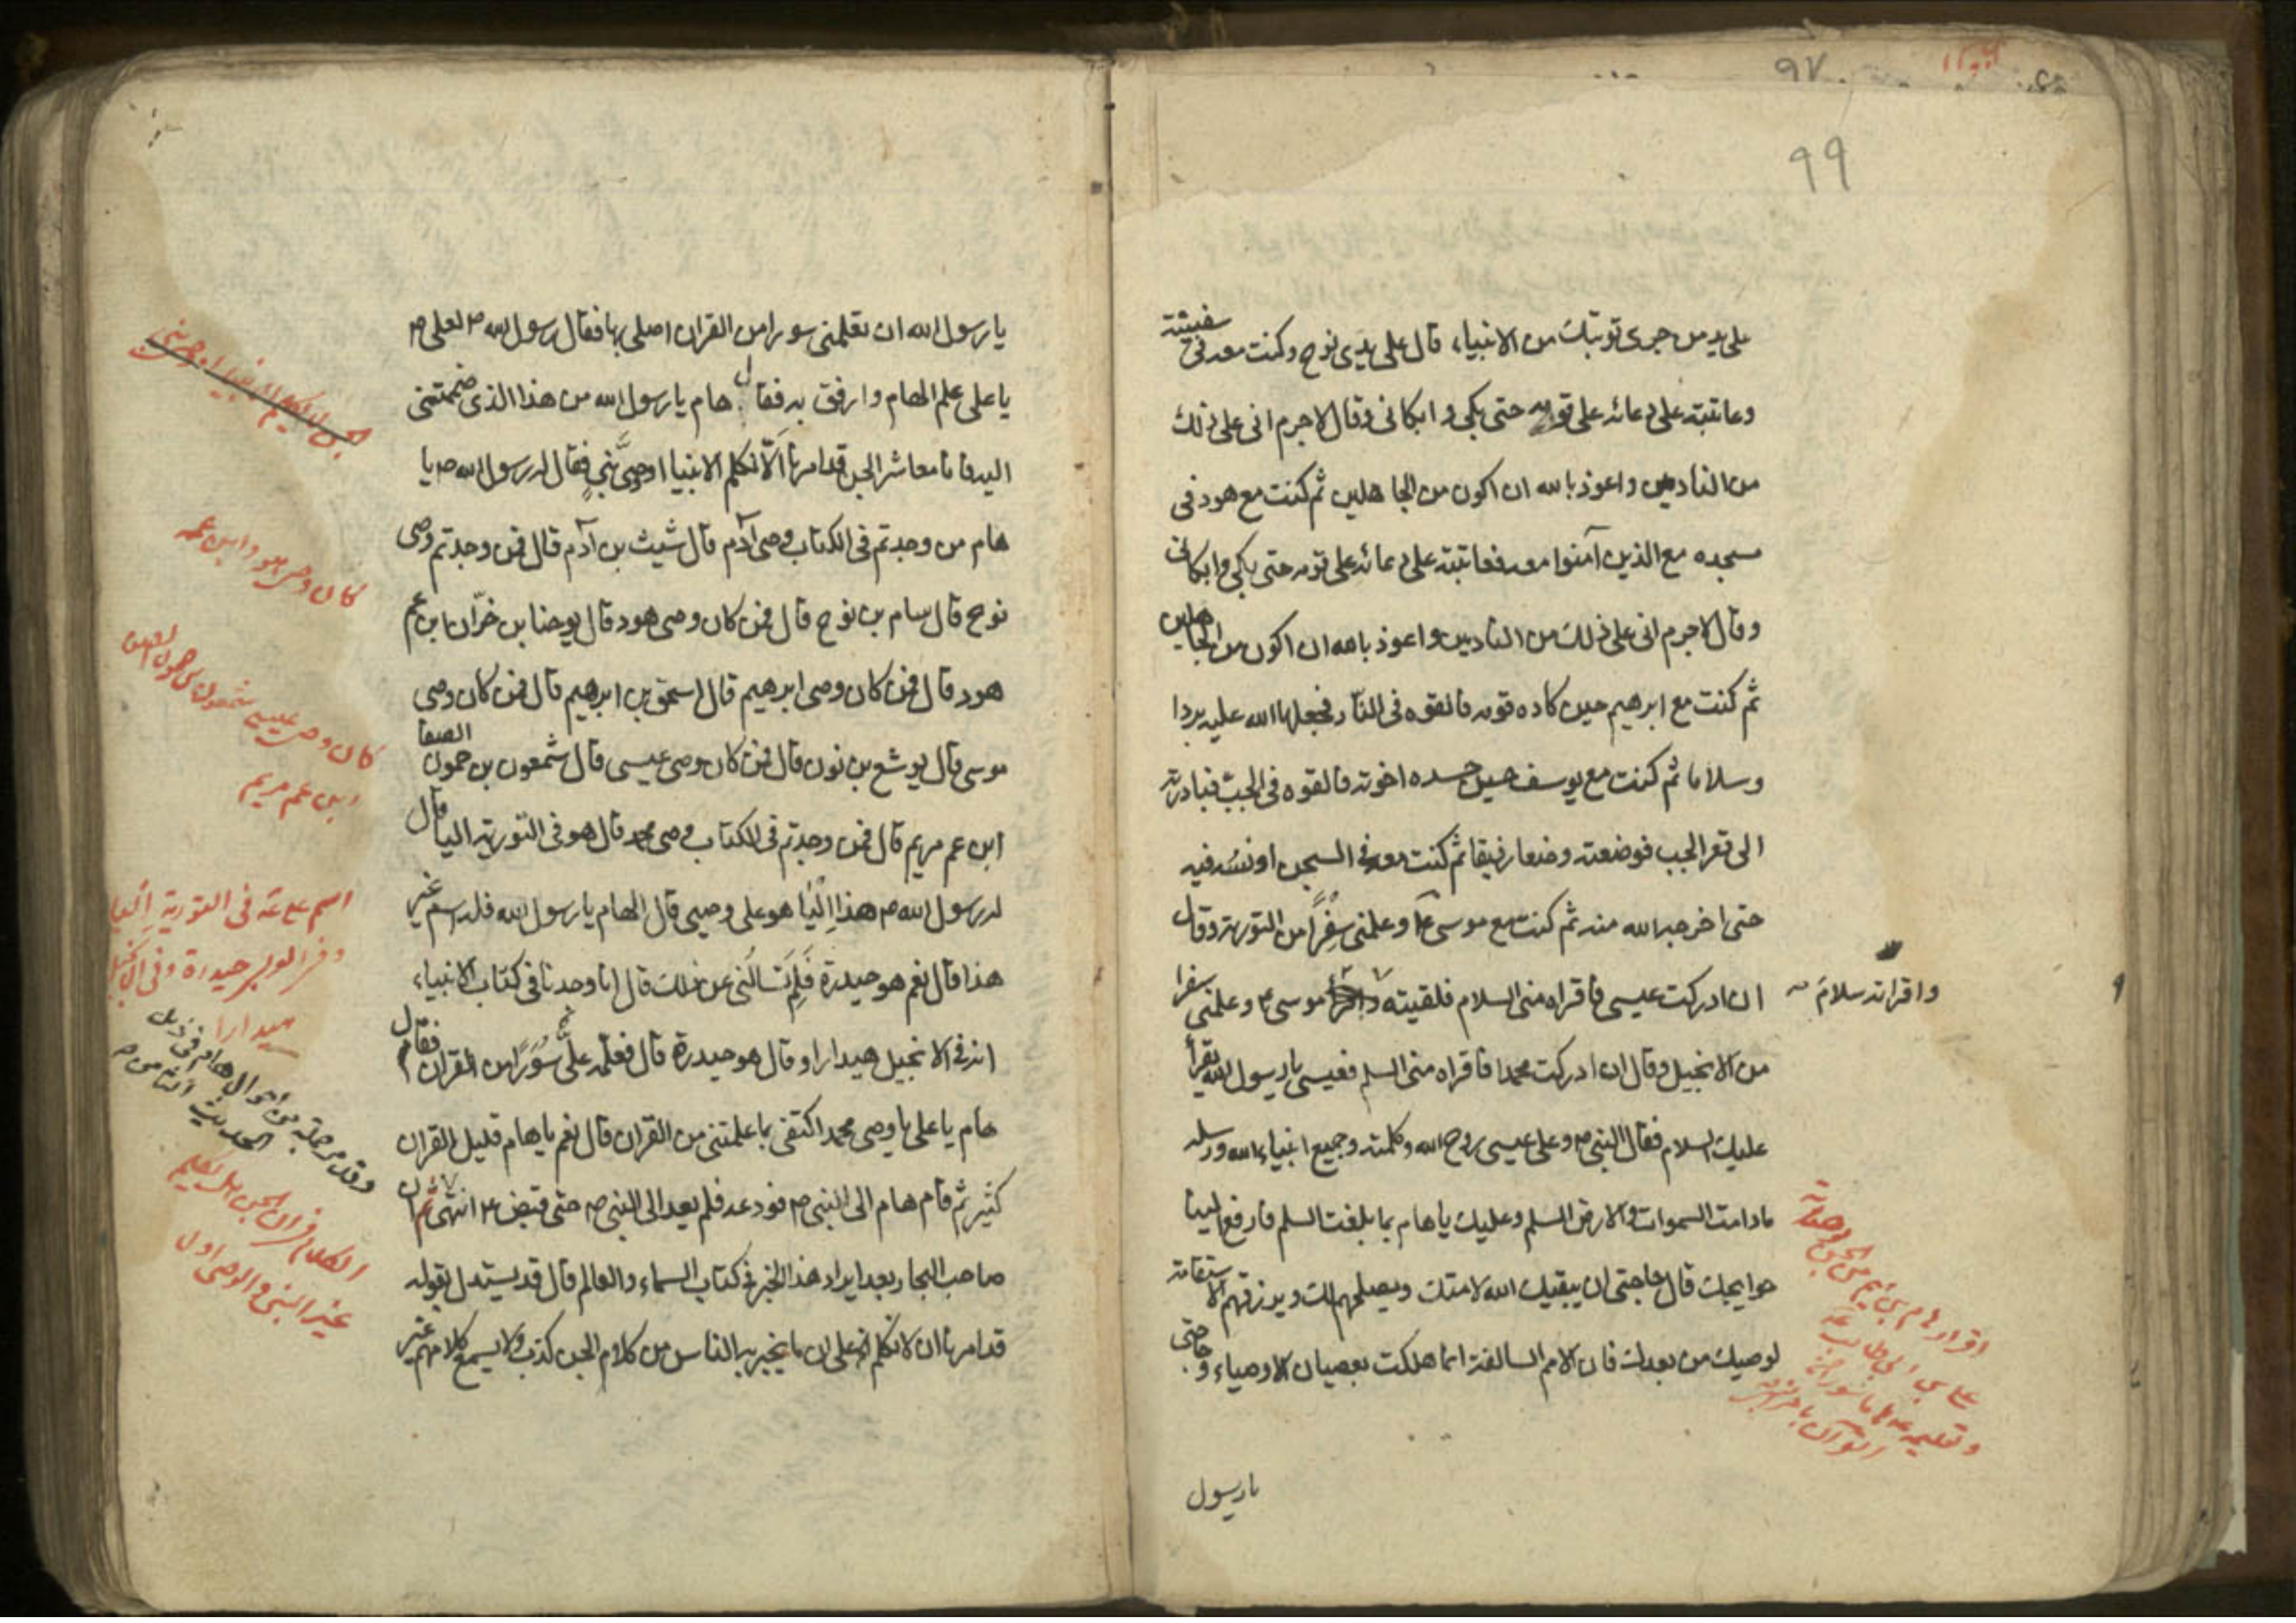 ٩٧
٩٩
على يد من جرى توبتك من الانبياء قال على يدى نوح وكنت معه فى سفينته
وعاتبته على دعائه على قومه حتى بكى و ابكانى وقال لاجرم انى على ذلك
من النادمين واعوذ بالله ان اكون من الجاهلين ثم كنت مع هود فى
مسجده مع الذين آمنوا معه فعاتبته على دعائه على قومه حتى بكى وابكانى
وقال لاجرم انى على ذلك من النادمين واعوذ بالله ان اكون من الجاهلين
ثم كنت مع ابرهيم حين كاده قومه فالقوه فى النار فجعلها الله عليه بردا
وسلاما ثم كنت مع يوسف حين حسده اخوته فالقوه فى الجب فبادرته
الى قعر الجب فوضعته وضعا رفيقا ثم كنت معه فى السجن اونسه فيه
حتى اخرجه الله منه ثم كنت مع موسى ع وعلمنى سِفْراً من التورية وقال
ان ادركت عيسى فاقراه منى السلام فلقيته موسى ع وعلمنى سفرا
واقراته سلام
من الانجيل وقال ان ادركت محمدا فاقراه منى السلم فعيسى يا رسول الله يقرأ
عليك السلام فقال النبى ص وعلى عيسى روح الله وكلمته وجميع انبياء الله ورسله
مادامت السموات والارض السلم وعليك يا هام بما بلغت السلم فارفع الينا
حوايجك قال حاجتى ان يبقيك الله لامتك ويصلحهم لك ويرزقهم الاستقامة
لوصيك من بعدك فان الامم السالفة انما هلكت بعصيان الاوصياء وحاجتى
اقرار هام بن هيم من الجن
القرآن
يا رسول
يا رسول الله ان تعلمنى سورا من القران اصلى بها فقال رسول الله ص لعلى ع
يا على علم الهام وارفق به فقال هام يا رسول الله من هذا الذى ضممتنى
اليه فانا معاشر الجن قد امرنا اَلّا نكلم الا نبيا او وصىَّ نبىٍ فقال له رسول الله ص يا
هام من وجدتم فى الكتاب وصى آدم قال شيث بن آدم قال فمن وجدتم وصى
نوح قال سام بن نوح قال فمن كان وصى هود قال يوحنا بن خزّان ابن عم
هود قال فمن كان وصى ابرهيم قال اسحق بن ابرهيم قال فمن كان وصى
موسى قال يوشع بن نون قال فمن كان وصى عيسى قال شمعون بن حمون الصفا
ابن عم مريم قال فمن وجدتم فى الكتاب وصى محمد قال هو فى التورية اليا قال
له رسول الله ص هذا اِلْيا هو على وصيى قال الهام يا رسول الله فله اسم غير
هذا قال نعم هو حيدرة فَلِمَ تسالُنى عن ذلك قال انا وجدنا فى كتاب الانبياء
انه فى الانجيل هيدارا و قال هو حيدرة قال فعلّمه علىٌّ سُوَراً من القران فقال
هام يا على يا وصى محمد اكتفى بما علمتنى من القران قال نعم يا هام قليل القران
كثير ثم قام هام الى النبى ص فودعه فلم يعد الى النبى ص حتى قبض ع انتهى ثم ان
صاحب البحار بعد ايراد هذا الخبر فى كتاب السماء والعالم قال قد يستدل بقوله
قد امرنا ان لا نكلم اه على ان ما يخبر به الناس من كلام الجن كذب ولا يسمع كلامهم غير
كان وصى هود ابن عمه
كان وصى عيسى شمعون بن حمون الصفا
ابن عم مريم
اسم على ع فى التورية اليا
حيدرة وفى الانجيل
هيدارا
غير النبى والوصى